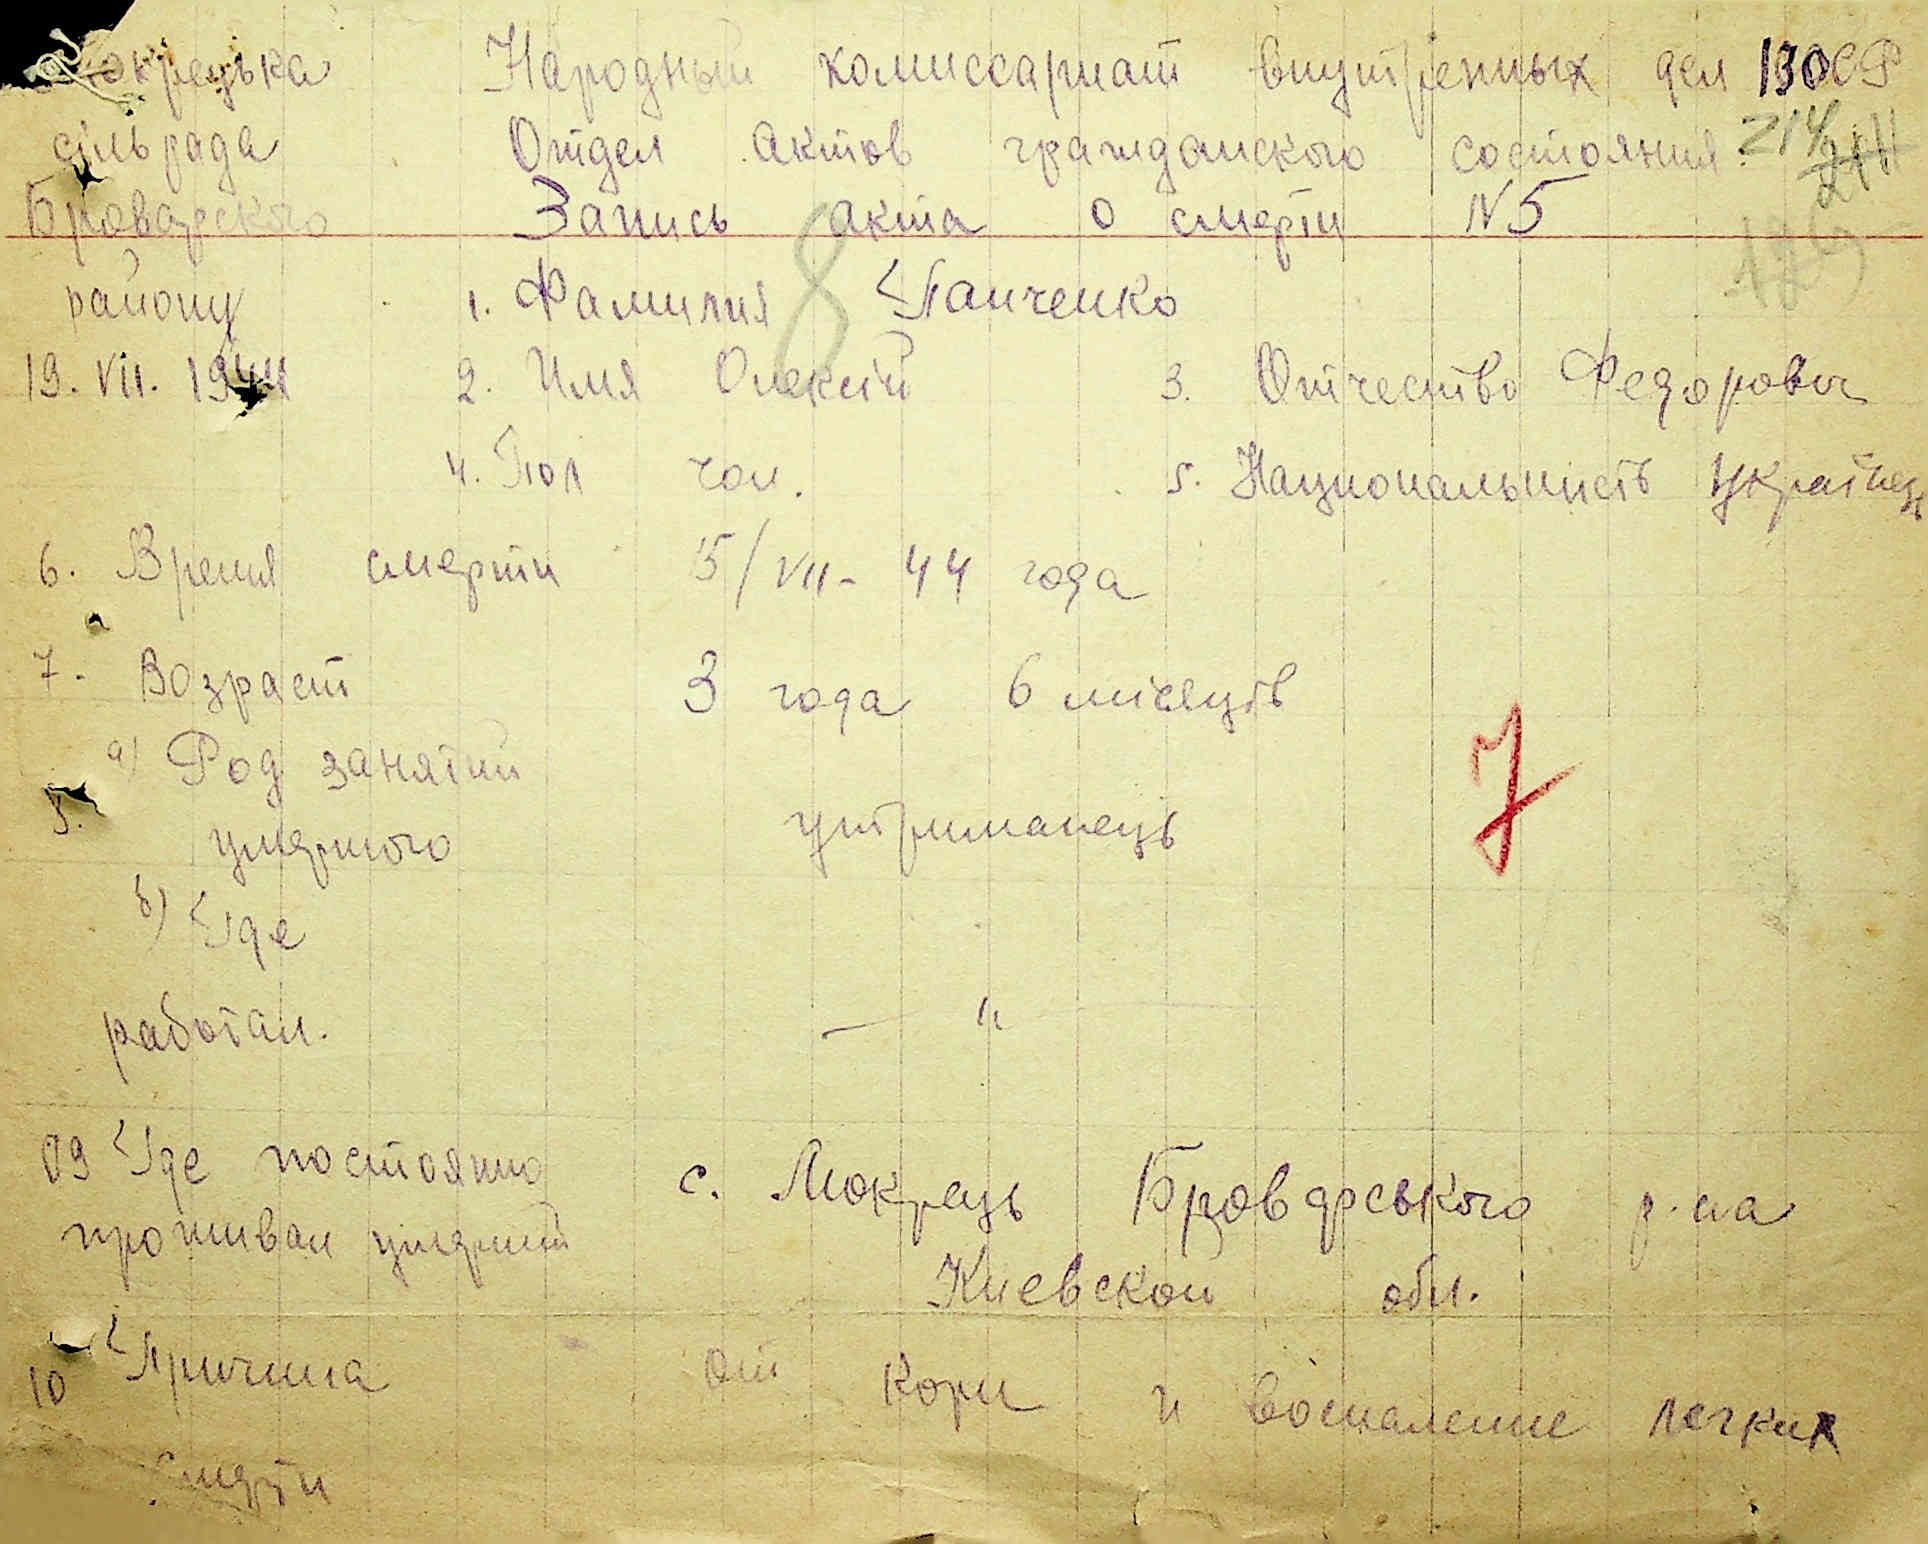 Мокрецька Народный комиссариат внутренных дел
сільрада Отдел актов гражданского состояния 214
Броварского Запись акта о смерти N5
району 1. Фамилия Панченко
19. VII. 1944 2. Имя Олексій 3. Отчество Федорович
4. Пол чол. 5. Национальность Українец
6. Время смерти 5/VII- 44 года
7. Возраст 3 года 6 місяців
а) Род занятий
умершого утриманець
7
в) Где
работал. — "
09 Где постоянно с. Мокрець Броварського р-на
проживал умерший Киевской обл.
10 Причина от кори и воспаление легких
смерти